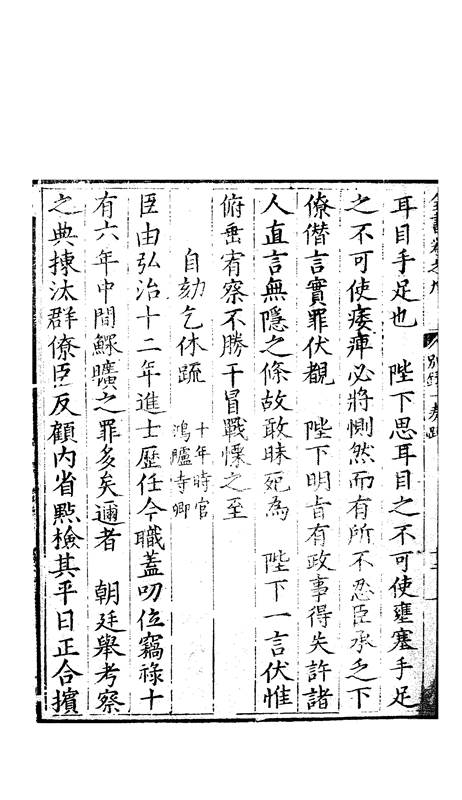 耳目手足也　陛下思耳目之不可使壅塞手足
之不可使痿痺必將惻然而有所不忍臣承乏下
僚僣言實罪伏覩　陛下明旨有政事得失許諸
人直言無隱之條故敢昧死為　陛下一言伏惟
俯垂宥察不勝干冒戰慄之至
自劾乞休疏　十年時官鴻臚寺卿
臣由弘治十二年進士歷任今職蓋叨位竊祿十
有六年中間鰥曠之罪多矣邇者　朝廷舉考察
之典揀汰群僚臣反顧内省㸃檢其平日正合擯